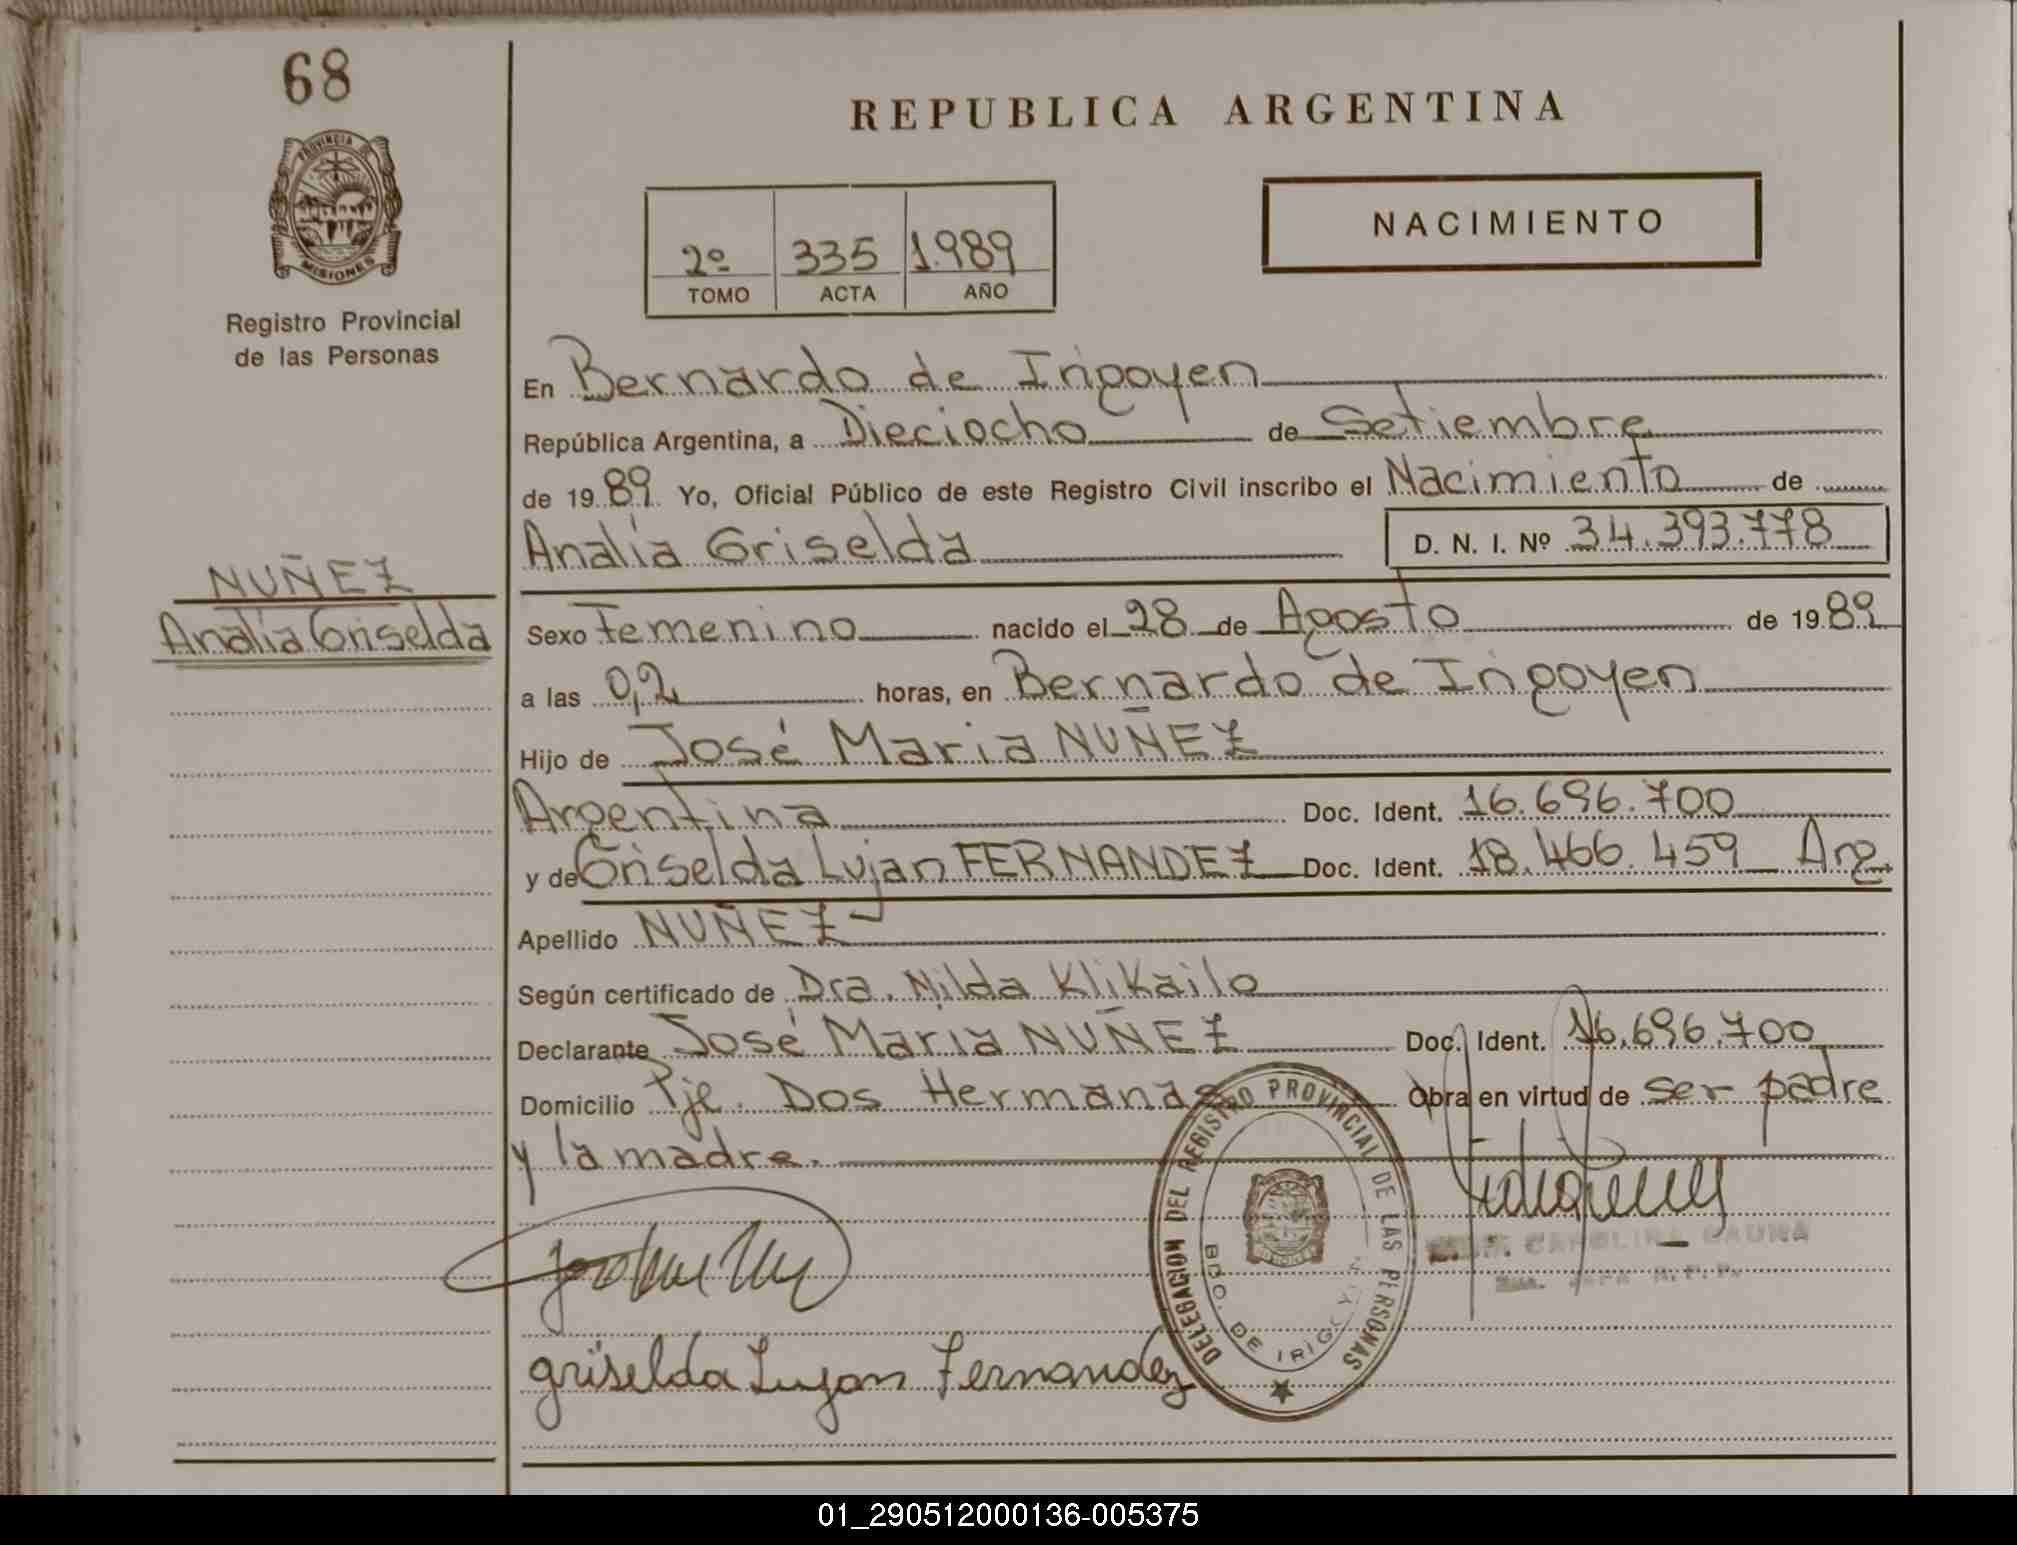 68
PROVINCIA DE
MISIONES
Registro Provincial
de las Personas
NUÑEZ
Analía Griselda
REPUBLICA ARGENTINA
NACIMIENTO
2º 335 1.989
TOMO ACTA AÑO
En Bernardo de Irigoyen
República Argentina, a Dieciocho de Setiembre
de 1989. Yo, Oficial Público de este Registro Civil inscribo el Nacimiento de
Analía Griselda D. N. I. Nº 34.393.778
Sexo Femenino nacido el 28 de Agosto de 1989
a las 0,2 horas, en Bernardo de Irigoyen
Hijo de José Maria NUÑEZ
Argentina Doc. Ident. 16.696.700
y de Griselda Lujan FERNANDEZ Doc. Ident. 18.466.459 Arg.
Apellido NUÑEZ
Según certificado de Dra. Nilda Klikailo
Declarante José Maria NUÑEZ Doc. Ident. 16.696.700
Domicilio Pje. Dos Hermanas Obra en virtud de ser padre
y la madre.
DELEGACION DEL REGISTRO PROVINCIAL DE LAS PERSONAS
BDO. DE IRIGOYEN
CAROLINA GAUNA
R.P.P.
griselda Lujan Fernandez
01_290512000136-005375